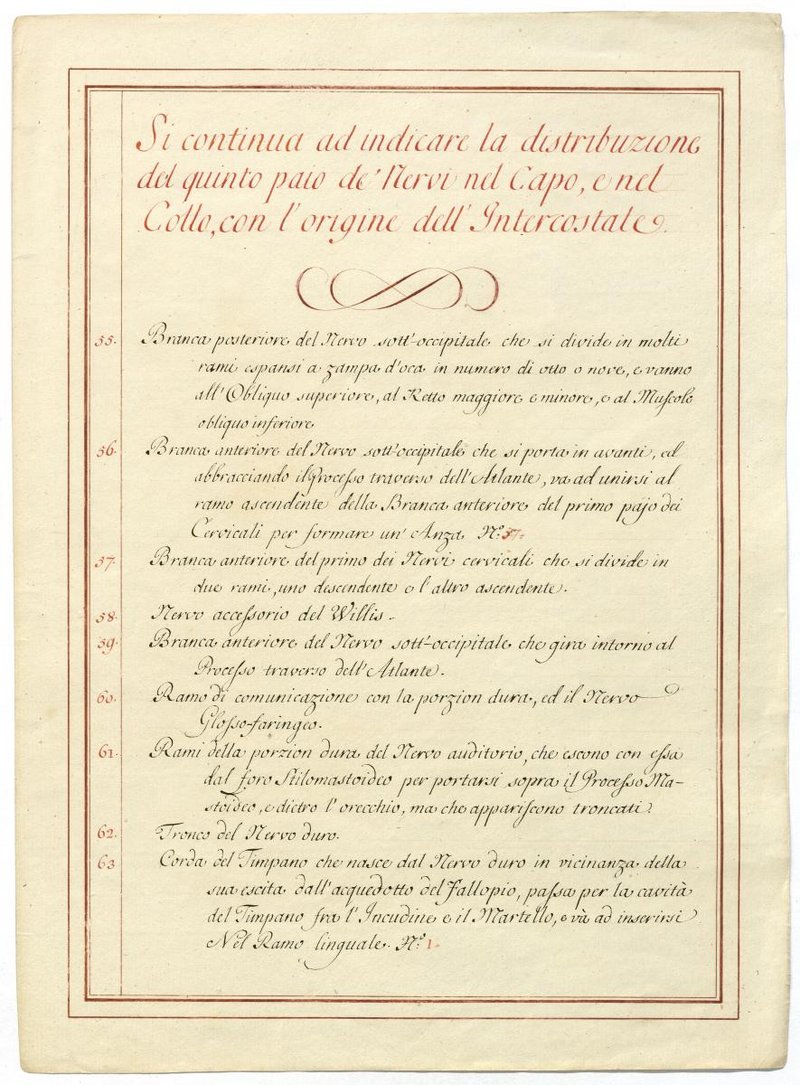 Si continua ad indicare la distribuzione
del quinto paio de' Nervi nel Capo, e nel
Collo, con l'origine dell'Intercostale.
55. Branca posteriore del Nervo sott'-occipitale che si divide in molti
rami espansi a zampa d'oca in numero di otto o nove, e vanno
all'Obliquo superiore, al Retto maggiore e minore, e al Muscolo
obliquo inferiore
56. Branca anteriore del Nervo sott'occipitale che si porta in avanti, ed
abbracciando il Processo traverso dell'Atlante, va ad unirsi al
ramo ascendente della Branca anteriore del primo pajo dei
Cervicali per formare un'Anza N.° 57.
57. Branca anteriore del primo dei Nervi cervicali che si divide in
due rami, uno descendente e l'altro ascendente.
58. Nervo accessorio del Willis.
59. Branca anteriore del Nervo sott'-occipitale che gira intorno al
Processo traverso dell'Atlante.
60. Ramo di comunicazione con la porzion dura, ed il Nervo
Glosso-faringeo.
61. Rami della porzion dura del Nervo auditorio, che escono con essa
dal foro Stilomastoideo per portarsi sopra il Processo Ma-
stoideo, e dietro l'orecchio, ma che appariscono troncati.
62. Tronco del Nervo duro.
63 Corda del Timpano che nasce dal Nervo duro in vicinanza della
sua escita dall'acquedotto del Fallopio, passa per la cavità
del Timpano fra l'Incudine e il Martello, e và ad inserirsi
Nel Ramo linguale. N.° 1.